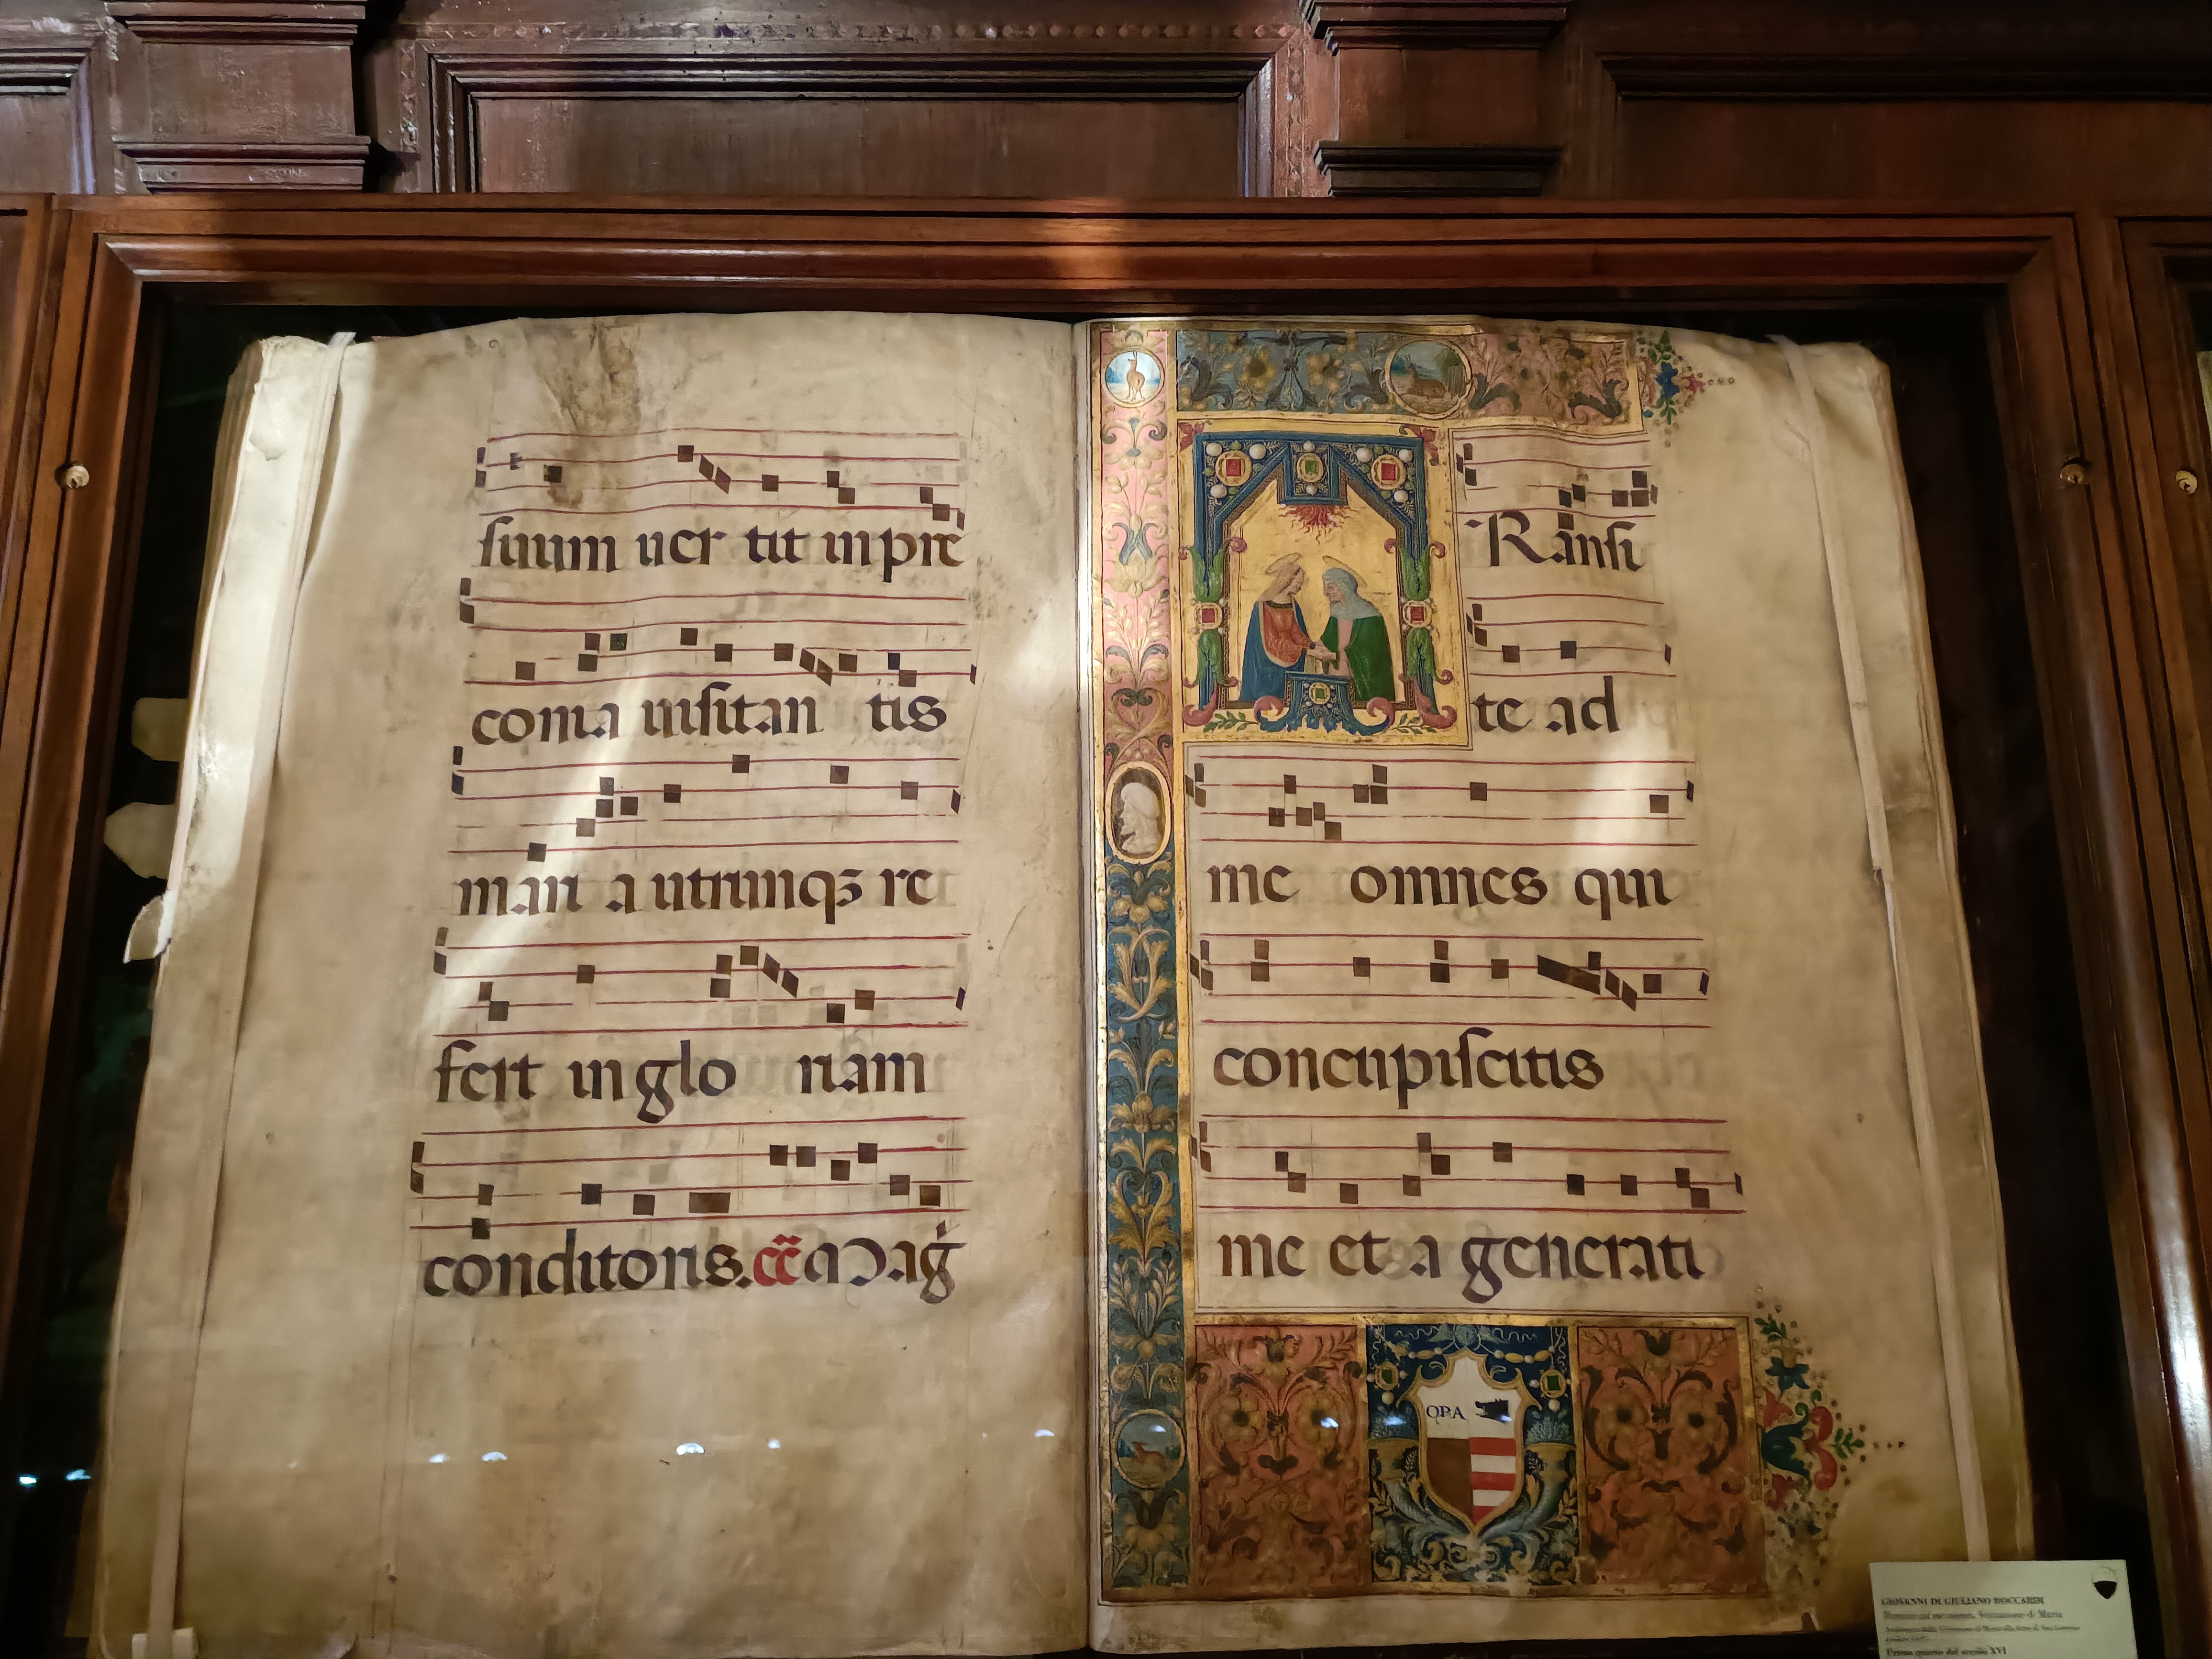 suum uer tit in pre
conia uisitan tis
mari a utrunqꝫ re
fert in glo riam
conditoris. cc̃ a Mag̃
Ransi
te ad
me omnes qui
concupiscitis
me et a generati
OPA
GIOVANNI DI GIULIANO BOCCARDI
Primo quarto del secolo XVI